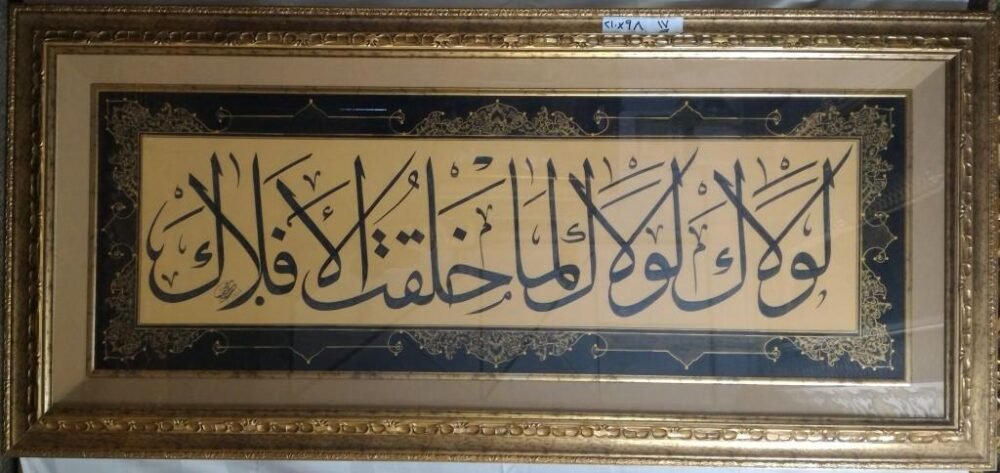 ٢١٠x٩٨ ١٧
لَوْلَاكَ لَوْلَاكَ لَمَا خَلَقْتُ الأَفْلَاكَ